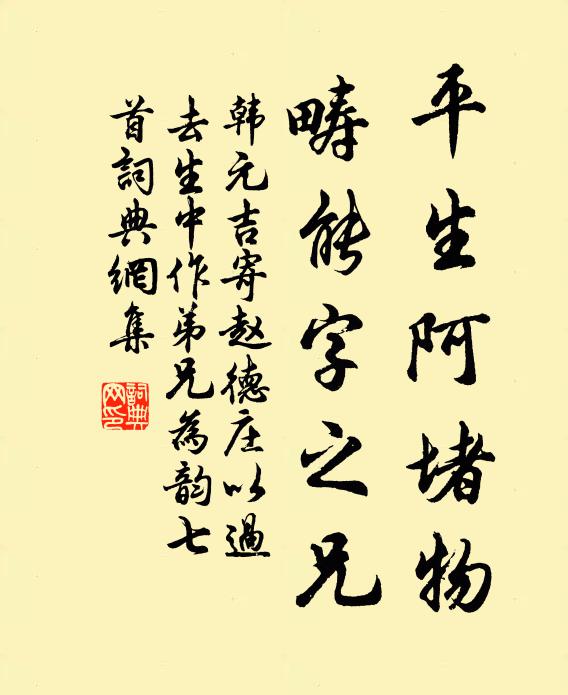 平生阿堵物
畴能字之兄
韩元吉寄赵德庄以過
去生中作弟兄為韵七
首詞典網集
詞典網印